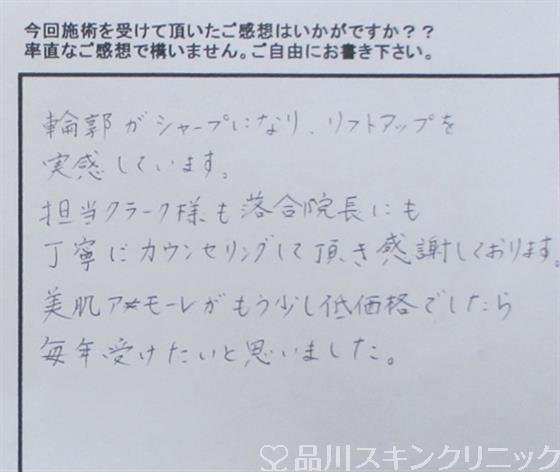 今回施術を受けて頂いたご感想はいかがですか??
率直なご感想で構いません。ご自由にお書き下さい。
輪郭がシャープになり、リフトアップを
実感しています。
担当クラーク様も落合院長にも
丁寧にカウンセリングして頂き感謝しております。
美肌アモーレがもう少し低価格でしたら
毎年受けたいと思いました。
品川スキンクリニック